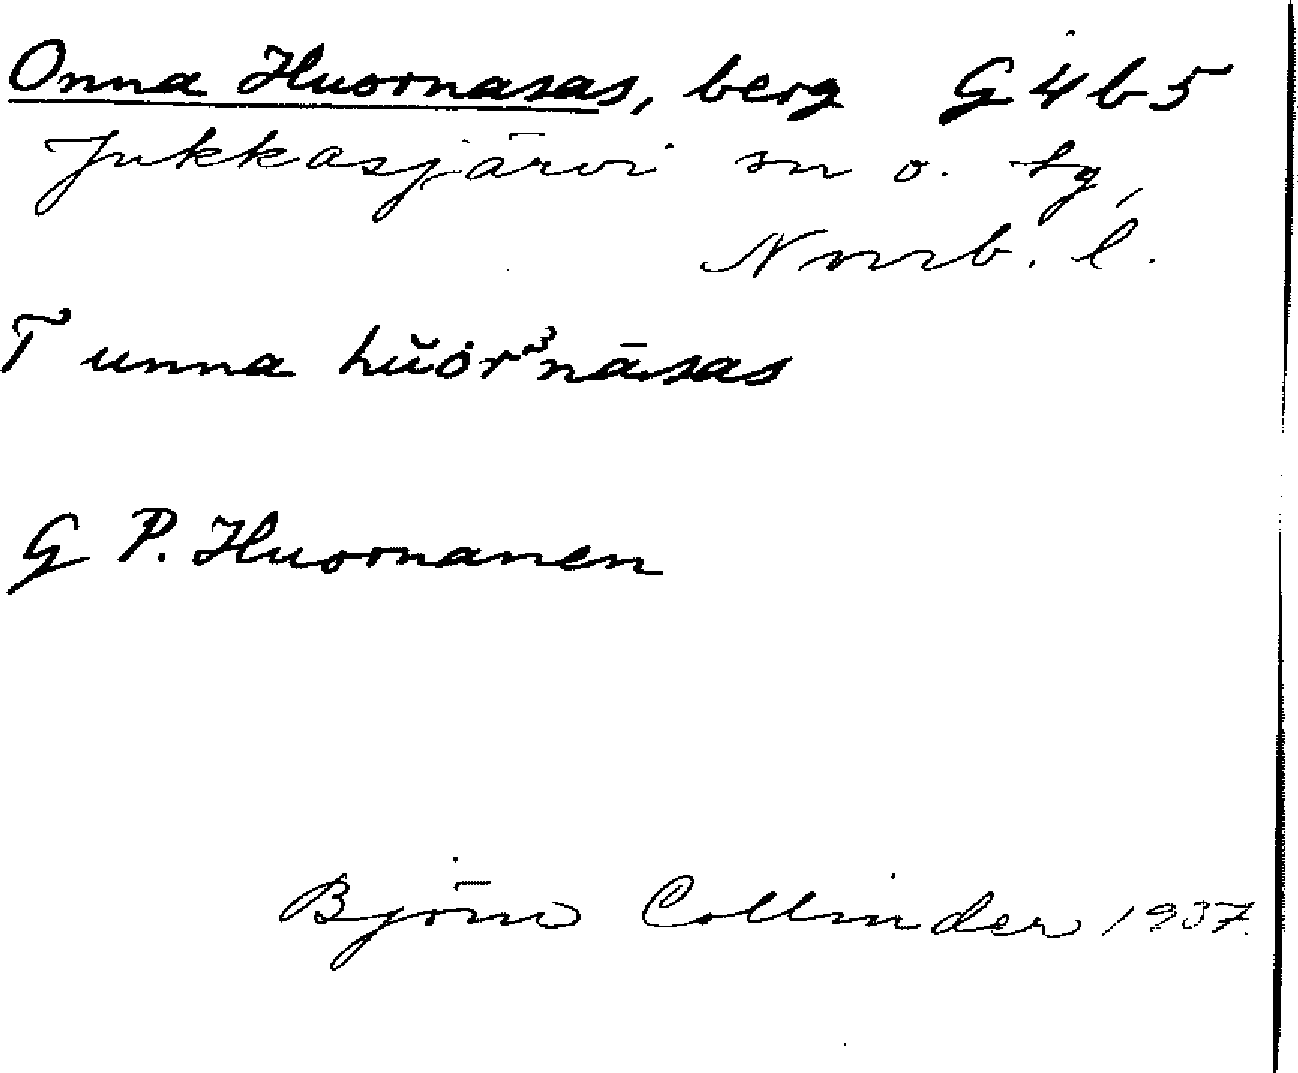 Onna Huornasas, berg G4b5
Jukkasjärvi sn o. tg,
Norrb. l.
T unna hŭȯrᵌnāsas
G P. Huornanen
Björn Collinder 1937.